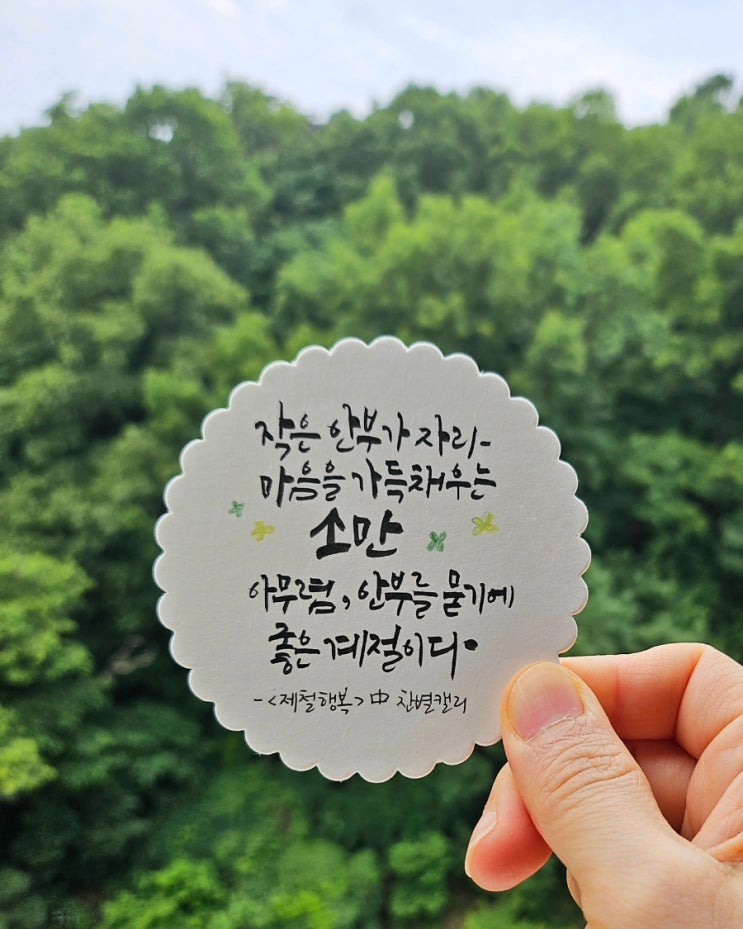 작은 안부가 자라-
마음을 가득 채우는
소만
아무렴, 안부를 묻기에
좋은 계절이다.
-<제철행복>中 찬별캘리